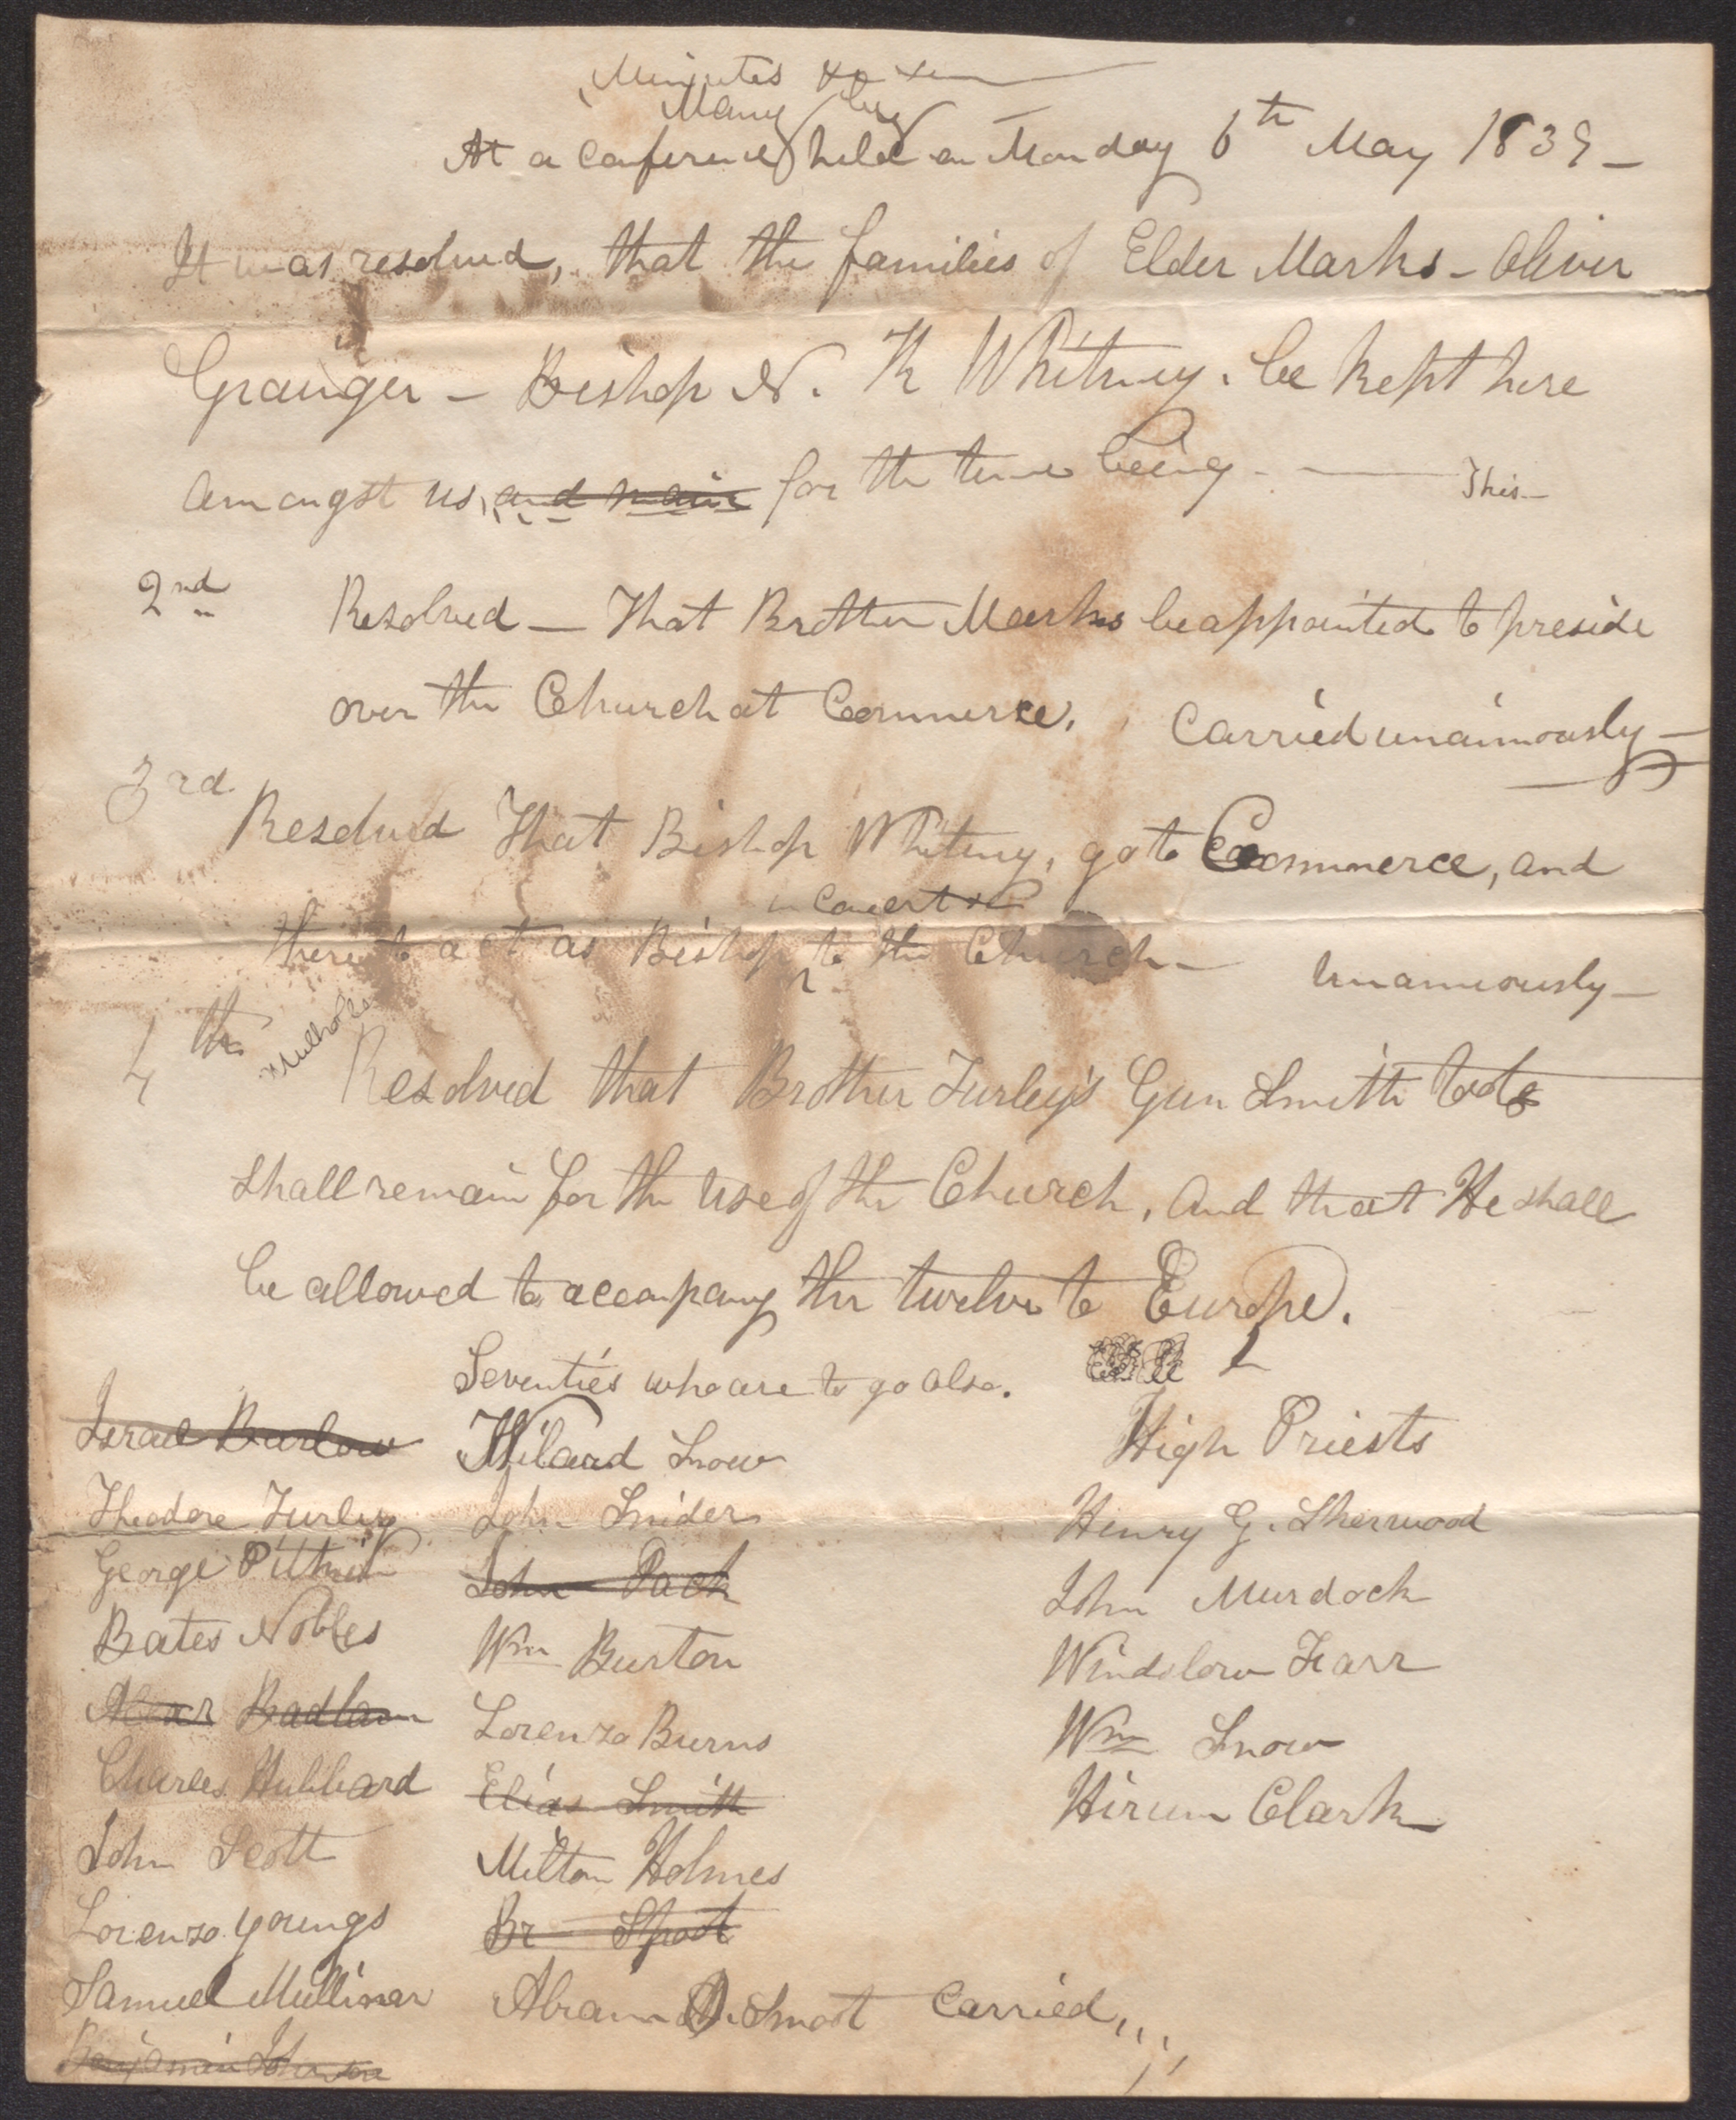 Minutes
At a conference held on Monday 6th May 1839 —
It was resolved, that the families of Elder Marks – Oliver
Granger – Bishop N. K Whitney. be kept here
amongst us, and main for the time being - — This—
2nd Resolved — That Brother Marks be appointed to preside
over the Church at Commerce. Carried unaimously —
3rd
Resolved That Bishop Whitney, go to Commerce, and
in concert &c
there to act as Bishop to the Church — Unanimously —
4th
Resolved that Brother Turley's Gun Smith tools
shall remain for the use of the Church, And that He shall
be allowed to accompany the twelve to Europe.
Seventies who are to go also.
Israel Barlow
Theodore Turley
George Pitkin
Bates Nobles
Alexr Badlam
Charles Hubbard
John Scott
Lorenzo Youngs
Samuel Mulliner
Benjamin Johnson
Wilard Snow
John Snider
John Pack
Wm Burton
Lorenzo Burns
Elias Smith
Milton Holmes
Br
Abram O. Smoot Carried,,,,
High Priests
Henry G. Sherwood
John Murdock
Windslow Farr
Wm Snow
Hirum Clark